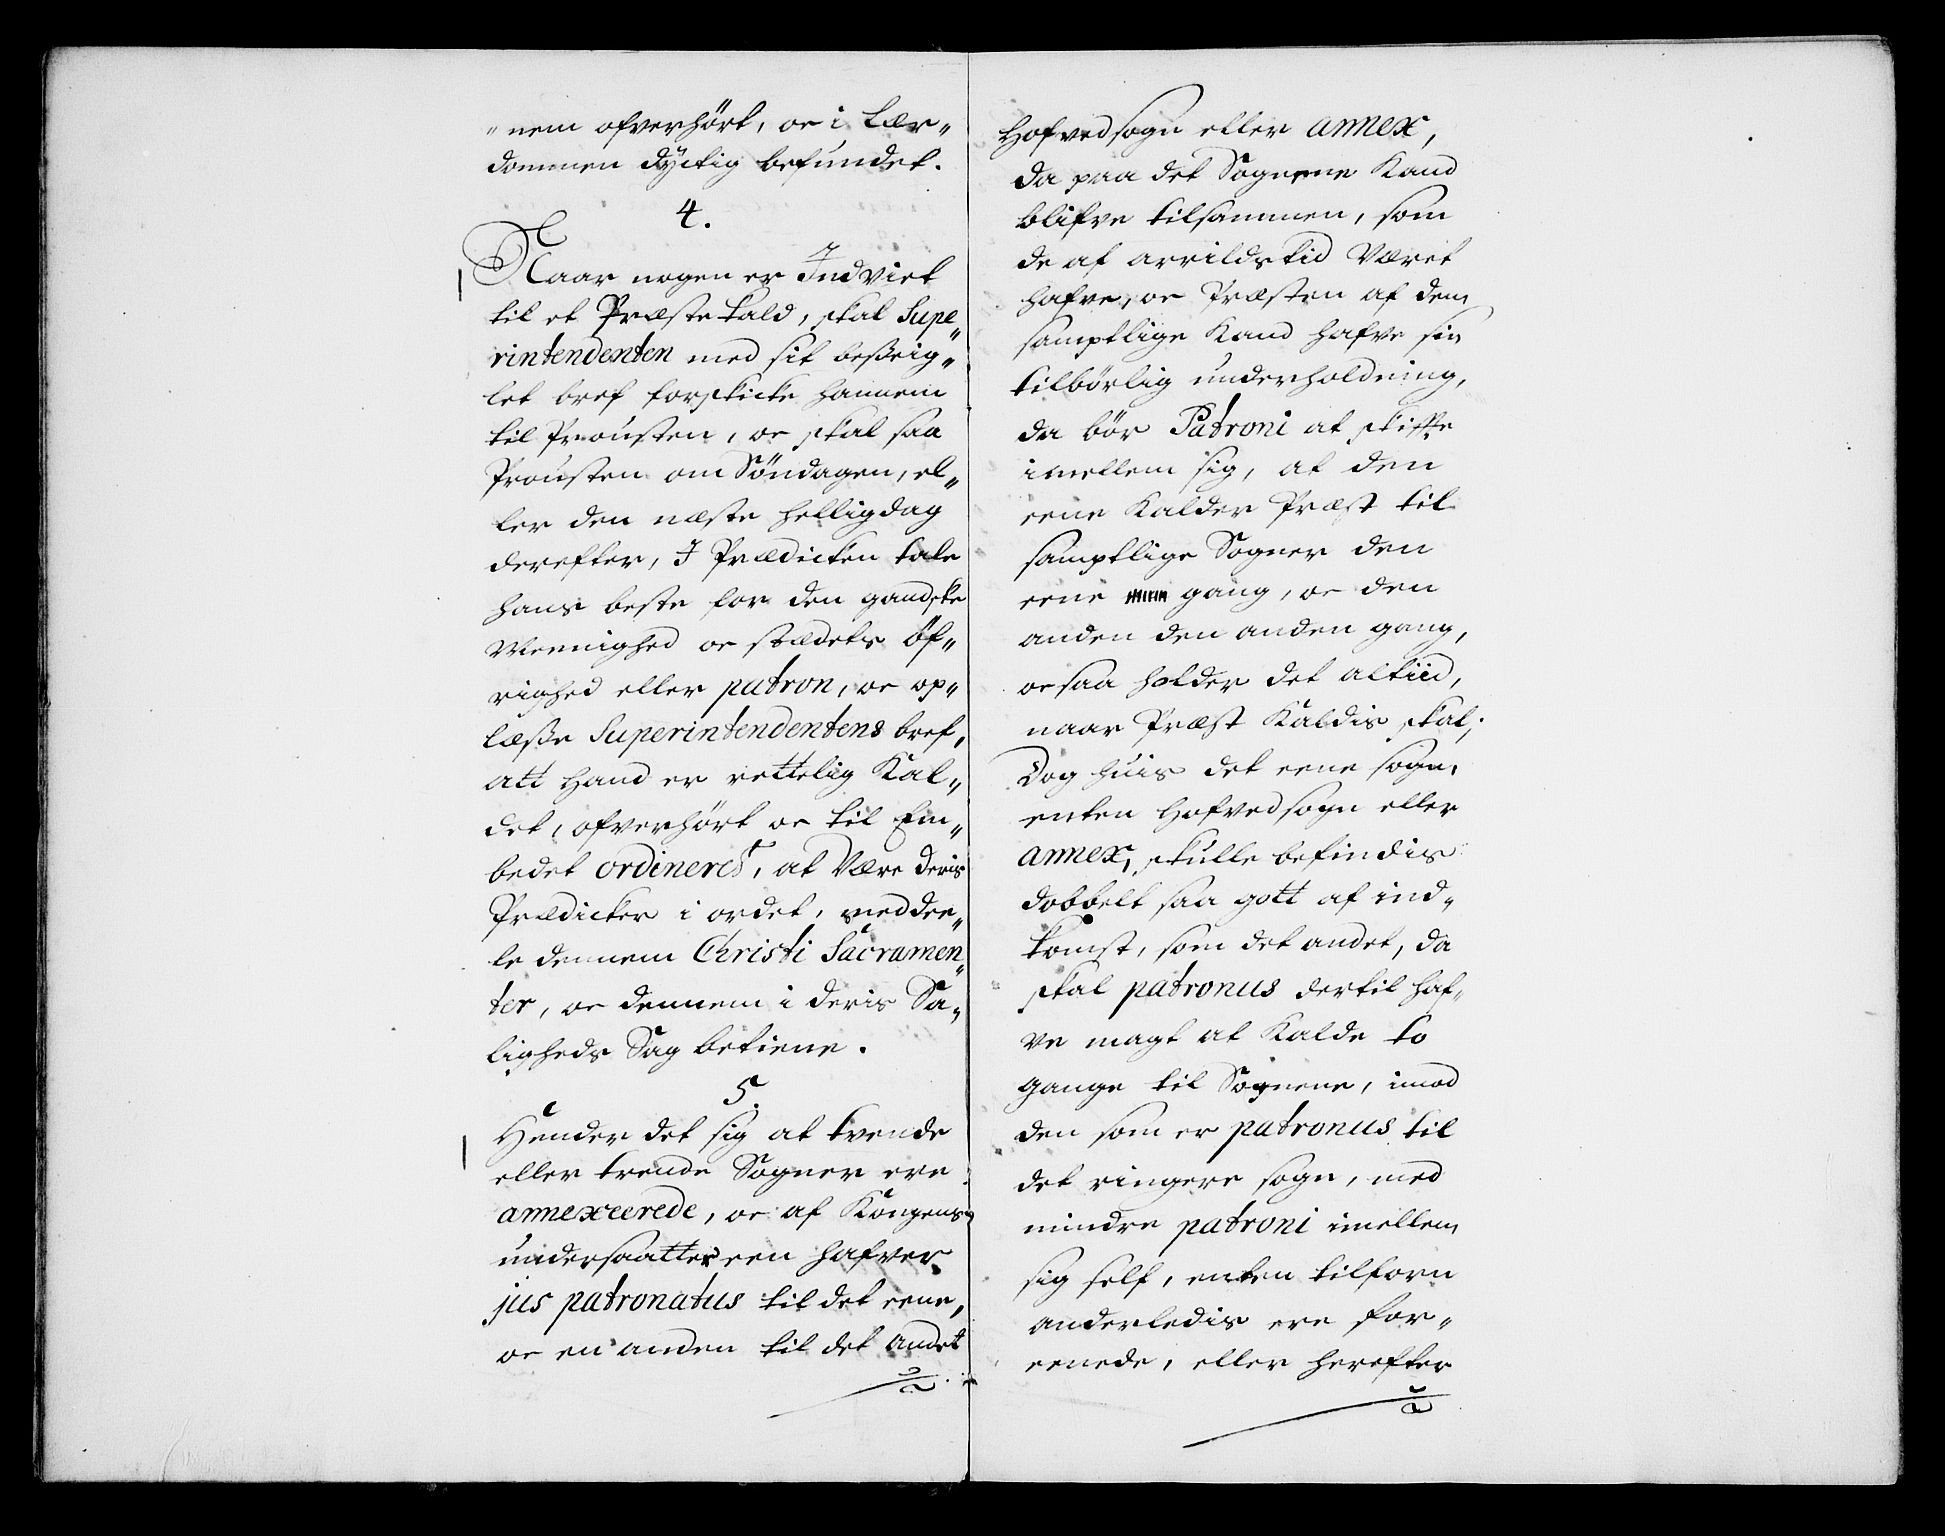 „nem ofverhört, oc i Lær„
dommen dyctig befundet.
4.
Naar nogen er Indviet
til et Præste kald, skal Supe„
rintendenten med sit beßeig„
let bref forskicke hannem
til Prousten, oc skal saa
Prousten om Söndagen, el„
ler den næste helligdag
derefter, I Prædicken tale
hans beste for den gandske
Meenighed oc stædets öf„
righed eller patron, oc op„
læße Superintendentens bref,
att hand er rettelig Kal„
det, ofverhört oc til Em„
bedet ordineret, at være deris
Prædicker i ordet, meddee„
le dennem Christi Sacramen„
ter, oc dennem i deris Sa„
ligheds Sag betiene.
5.
Hender det sig at tvende
eller trende Sogner ere
annexeerede, oc af Kongens
undersaatter een hafver
jus patronatus til det eene,
oc en anden til det andet
Hofvedsogn eller annex,
da paa det Sognene Kand
blifve tilsammen, som
de af arrildstid været
hafve, oc Præsten af dem
samptlige Kand hafve sin
tilbörlig underholdning,
da bör Patroni at skiffte
imellem sig, at den
eene Kalder Præst til
samptlige Sogner den
eene gang, oc den
anden den anden gang,
oc saa holder det altiid,
naar Præst Kaldis skal;
Dog huis det eene sogn,
enten Hofvedsogn eller
annex, skulle befindis
dobbelt saa gott af ind„
komst, som det andet, da
skal patronus dertil haf„
ve magt at Kalde to
gange til Sognene, imod
den som er patronus til
det ringere sogn, med
mindre patroni imellem
sig self, enten tilforn
anderledis ere for„
eenede, eller herefter